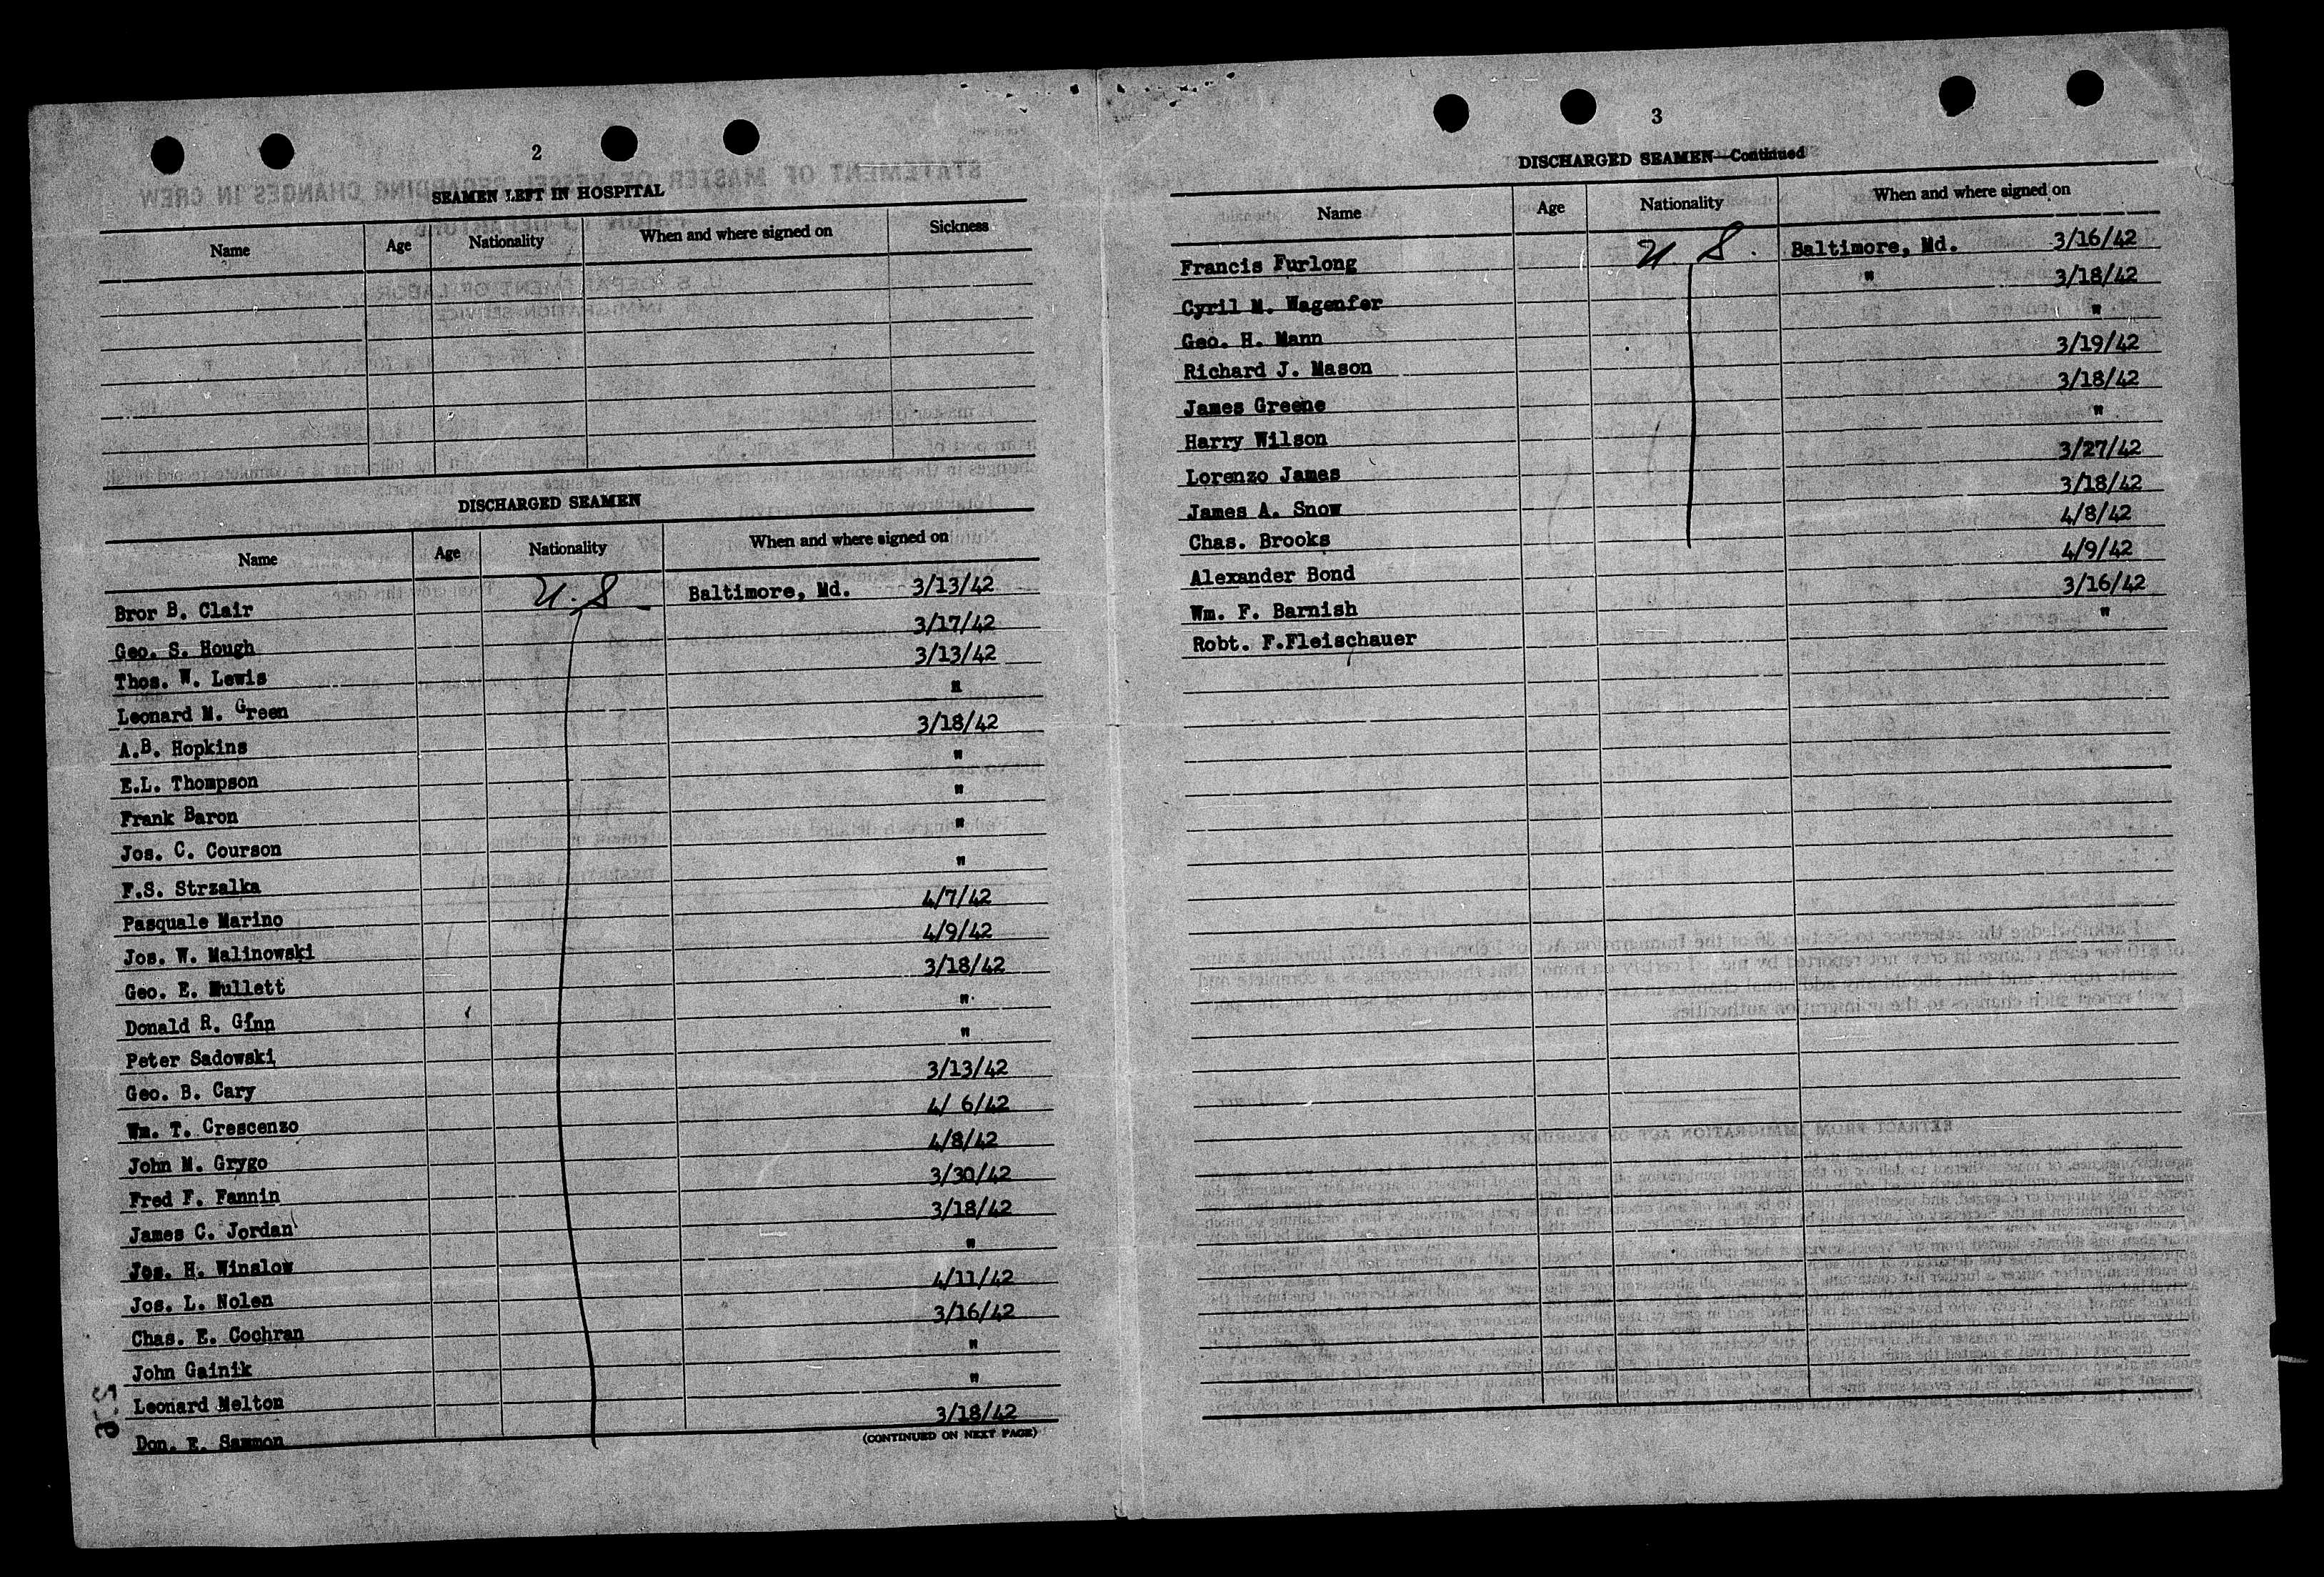 2
SEAMEN LEFT IN HOSPITAL
Name Age Nationality When and where signed on Sickness
DISCHARGED SEAMEN
Name Age Nationality When and where signed on
Bror B. Clair U.S. Baltimore, Md. 3/13/42
Geo. S. Hough 3/17/42
Thos. W. Lewis 3/13/42
Leonard M. Green "
A.B. Hopkins 3/18/42
E.L. Thompson "
Frank Baron "
Jos. C. Courson "
F.S. Strzalka "
Pasquale Marino 4/7/42
Jos. W. Malinowski 4/9/42
Geo. E. Mullett 3/18/42
Donald R. Ginn "
Peter Sadowski "
Geo. B. Cary 3/13/42
Wm. T. Crescenzo 4/ 6/42
John M. Grygo 4/8/42
Fred F. Fannin 3/30/42
James C. Jordan 3/18/42
Jos. H. Winslow "
Jos. L. Nolen 4/11/42
Chas. E. Cochran 3/16/42
John Gainik "
Leonard Melton "
Don. E. Sammon 3/18/42
(CONTINUED ON NEXT PAGE)
3
DISCHARGED SEAMEN—Continued
Name Age Nationality When and where signed on
Francis Furlong U S. Baltimore, Md. 3/16/42
Cyril M. Wagenfer " 3/18/42
Geo. H. Mann "
Richard J. Mason 3/19/42
James Greene 3/18/42
Harry Wilson "
Lorenzo James 3/27/42
James A. Snow 3/18/42
Chas. Brooks 4/8/42
Alexander Bond 4/9/42
Wm. F. Barnish 3/16/42
Robt. F.Fleischauer "